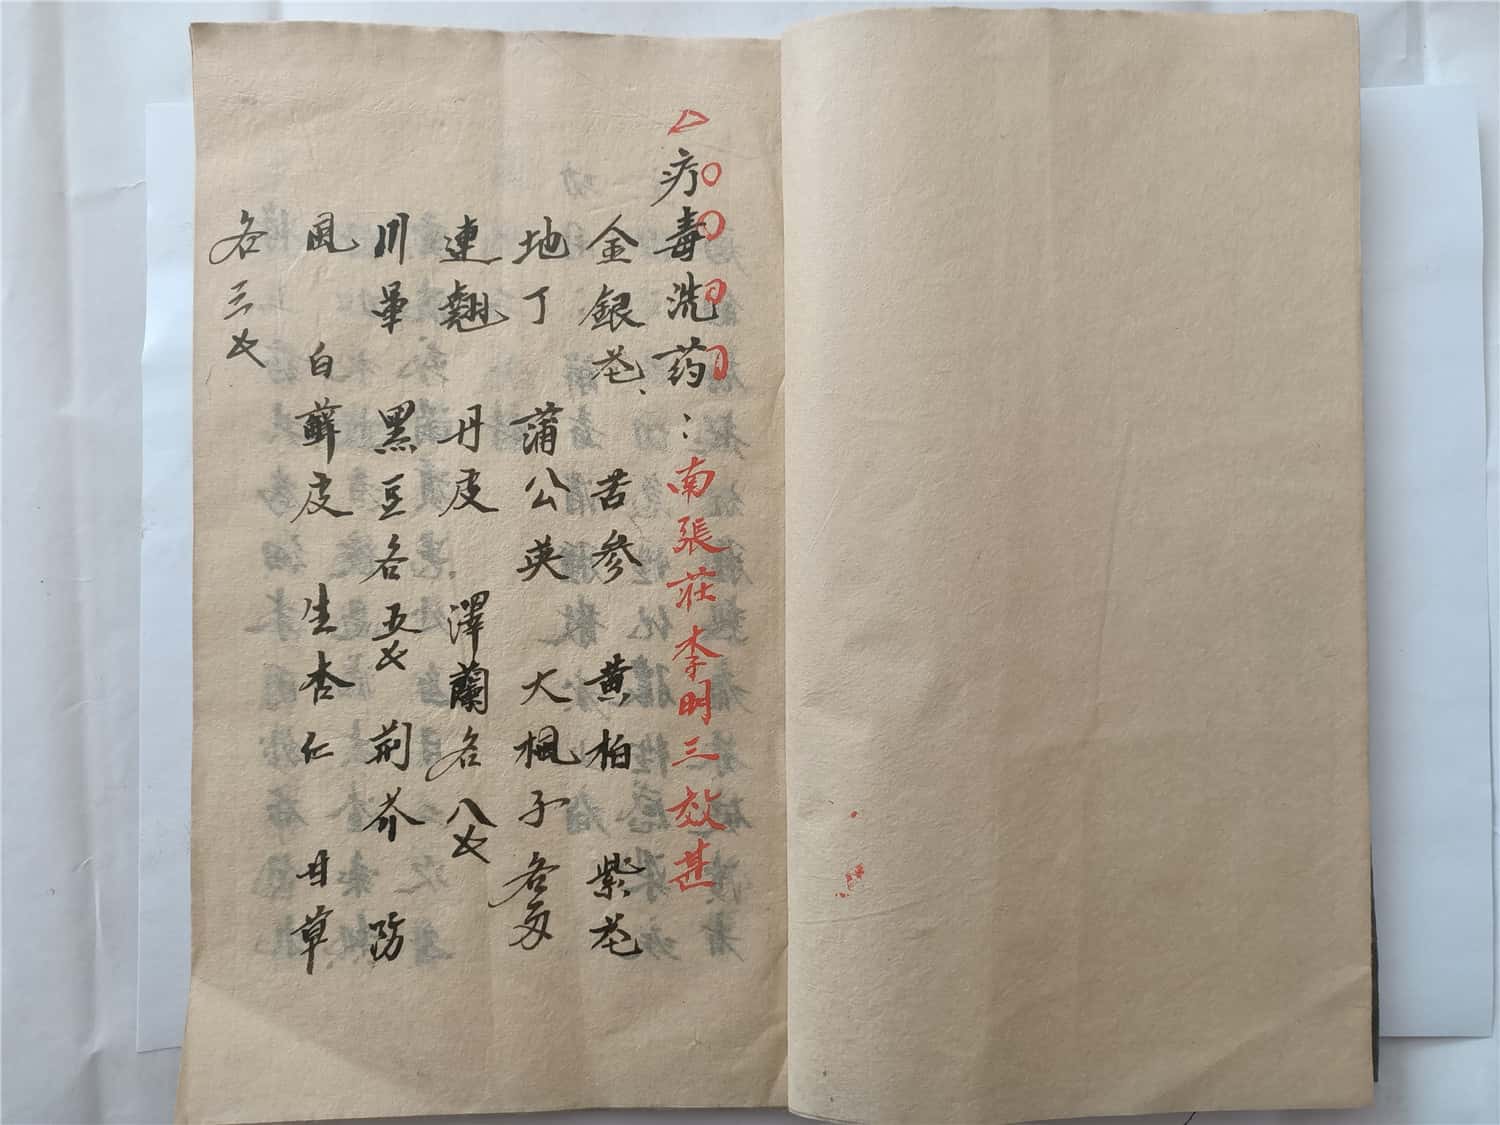 疗毒洗药：南張莊李明三效甚
金銀花 苦参 黄柏 紫花
地丁 蒲公英 大楓子各
連翹 丹皮 澤蘭各八钱
川軍 黑豆各五钱 荆芥 防
風 白蘚皮 生杏仁 甘草
各三钱